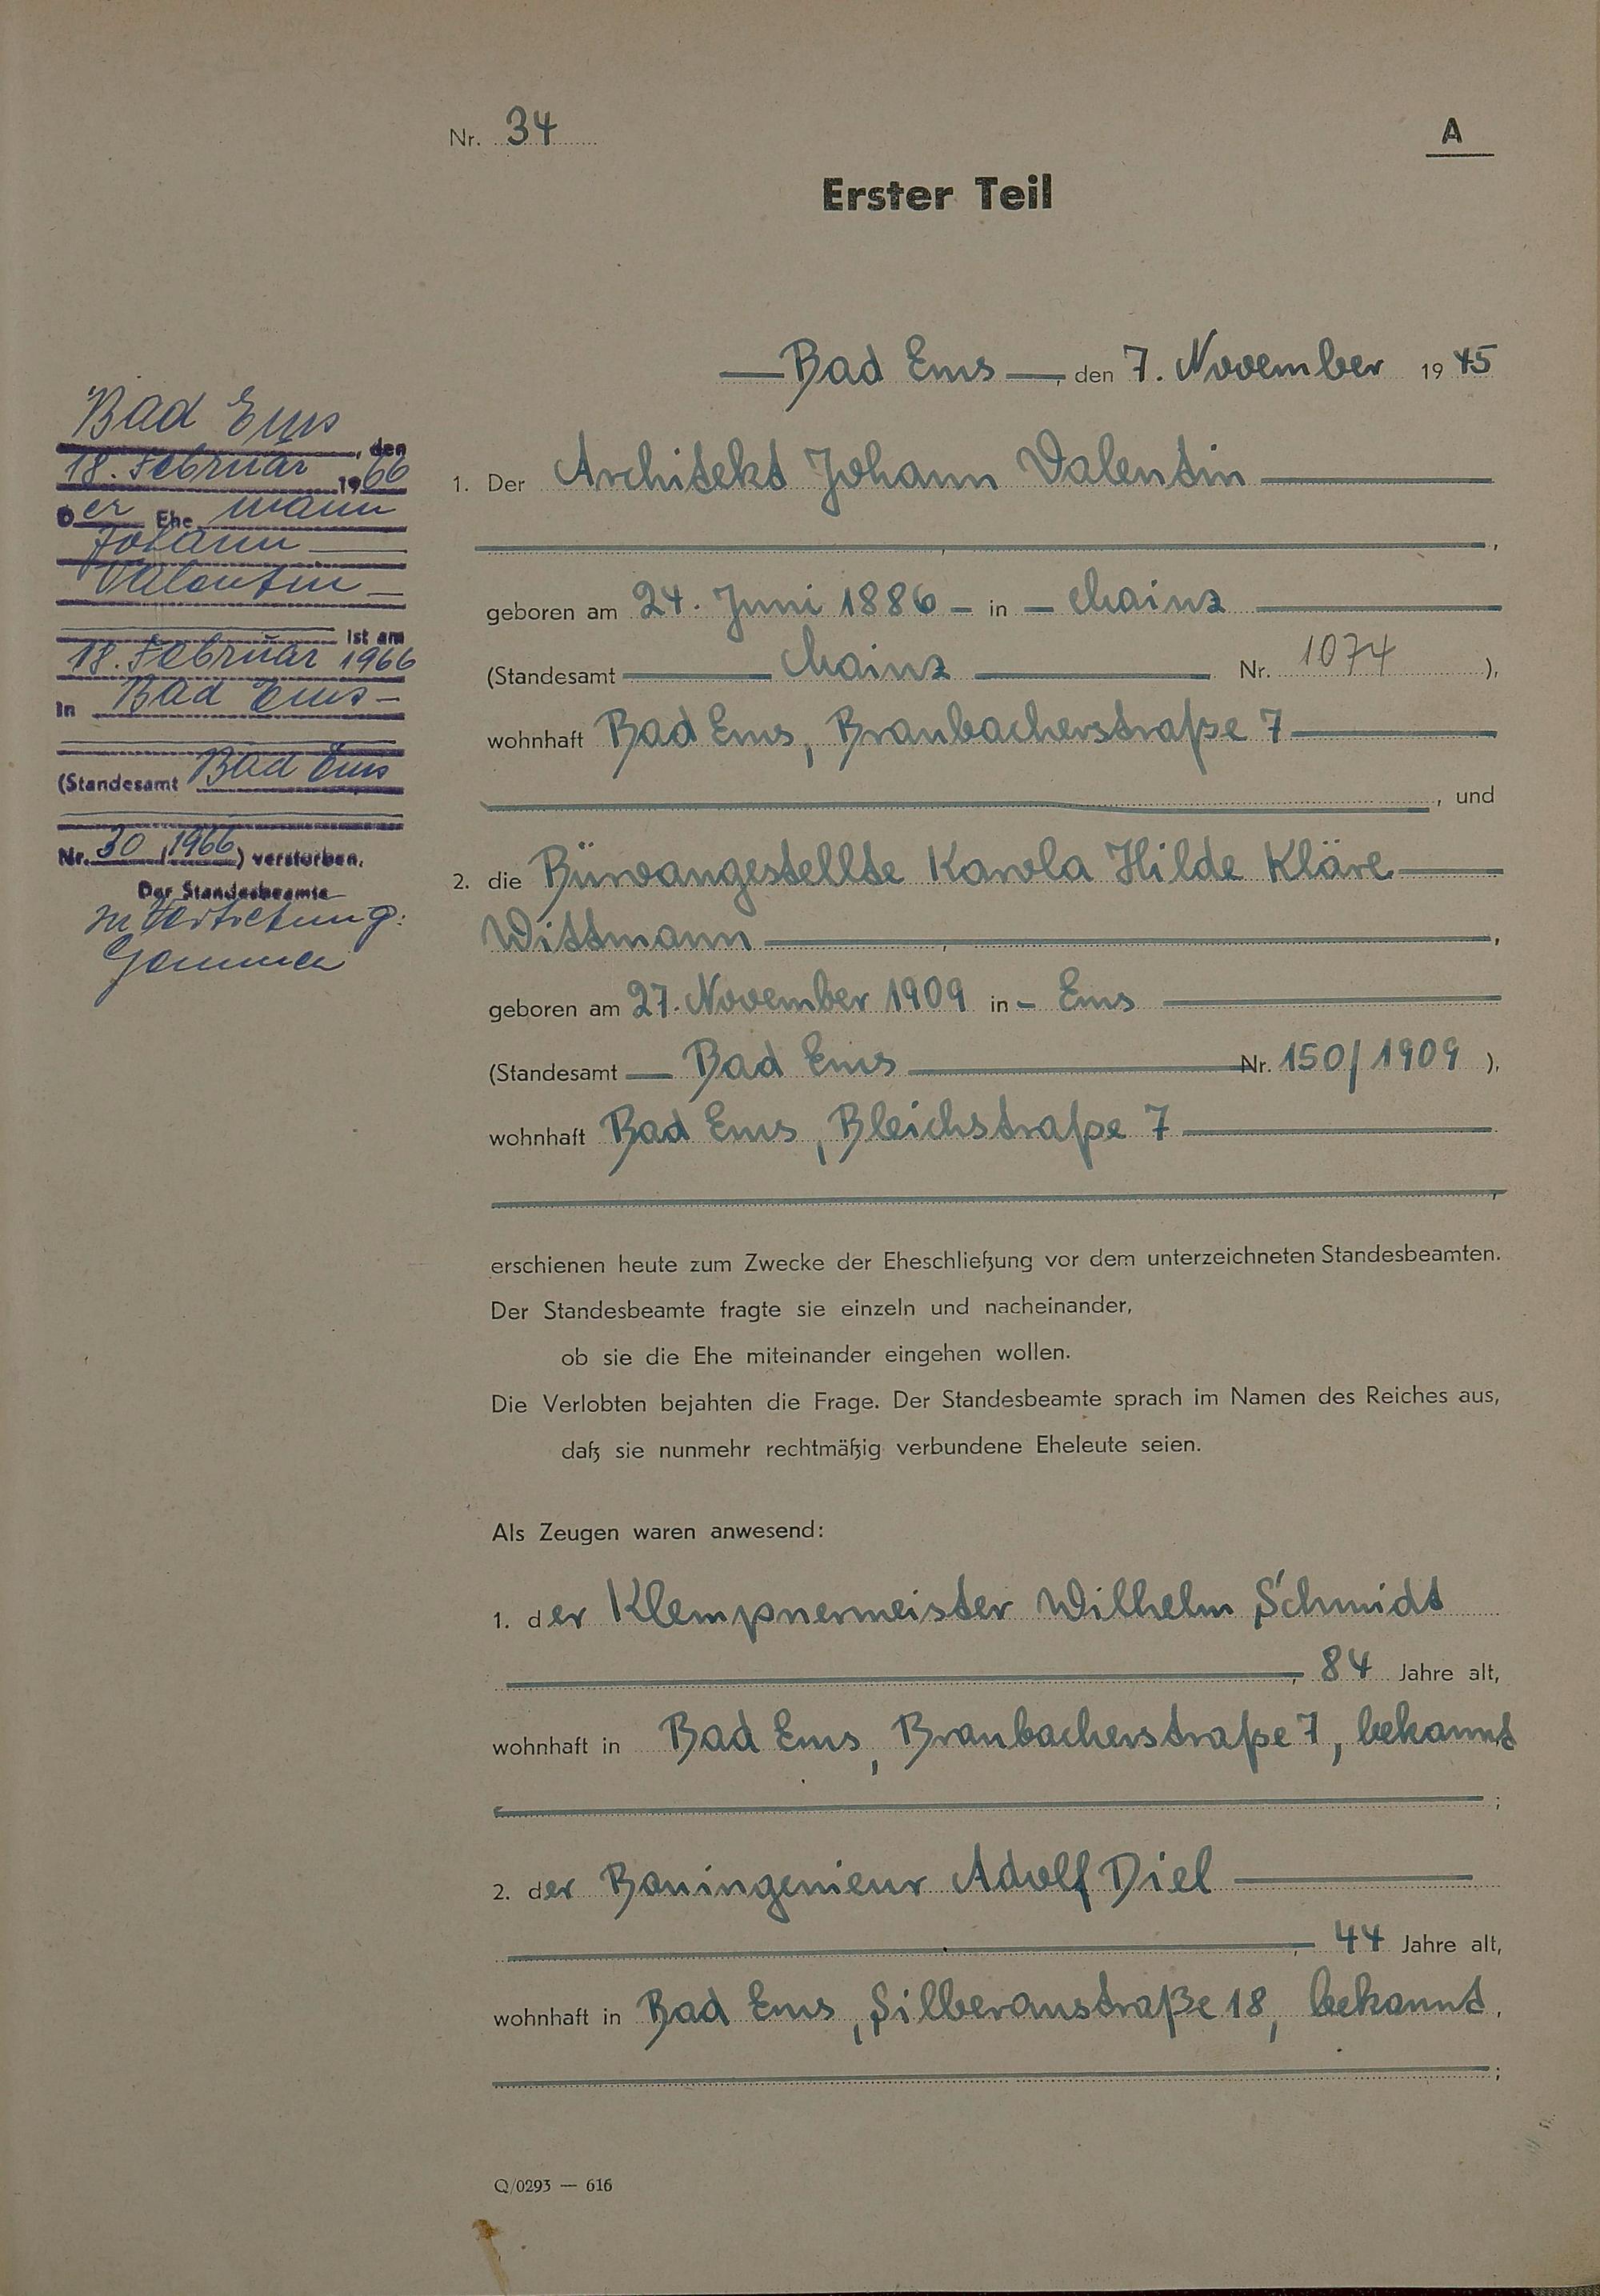 Nr. 34
A
Erster Teil
Bad Ems, den 7. November 1945
1. Der Architekt Johann Valentin
geboren am 24. Juni 1886 in Mainz
(Standesamt Mainz Nr. 1074),
wohnhaft Bad Ems, Braubacherstraße 7
, und
2. die Büroangestellte Karola Hilde Kläre
Wittmann,
geboren am 27. November 1909 in Ems
(Standesamt Bad Ems Nr. 150/1909),
wohnhaft Bad Ems, Bleichstraße 7
erschienen heute zum Zwecke der Eheschließung vor dem unterzeichneten Standesbeamten.
Der Standesbeamte fragte sie einzeln und nacheinander,
ob sie die Ehe miteinander eingehen wollen.
Die Verlobten bejahten die Frage. Der Standesbeamte sprach im Namen des Reiches aus,
daß sie nunmehr rechtmäßig verbundene Eheleute seien.
Als Zeugen waren anwesend:
1. der Klempnermeister Wilhelm Schmidt
, 84 Jahre alt,
wohnhaft in Bad Ems, Braubacherstraße 7, bekannt
;
2. der Bauingenieur Adolf Diel
, 44 Jahre alt,
wohnhaft in Bad Ems, Silberaustraße 18, bekannt,
;
Q/0293 — 616
Bad Ems, den
18. Februar 1966
Der Ehemann
Johann
Valentin
ist am
18. Februar 1966
in Bad Ems
(Standesamt Bad Ems
Nr. 30/1966) verstorben.
Der Standesbeamte
In Vertretung: